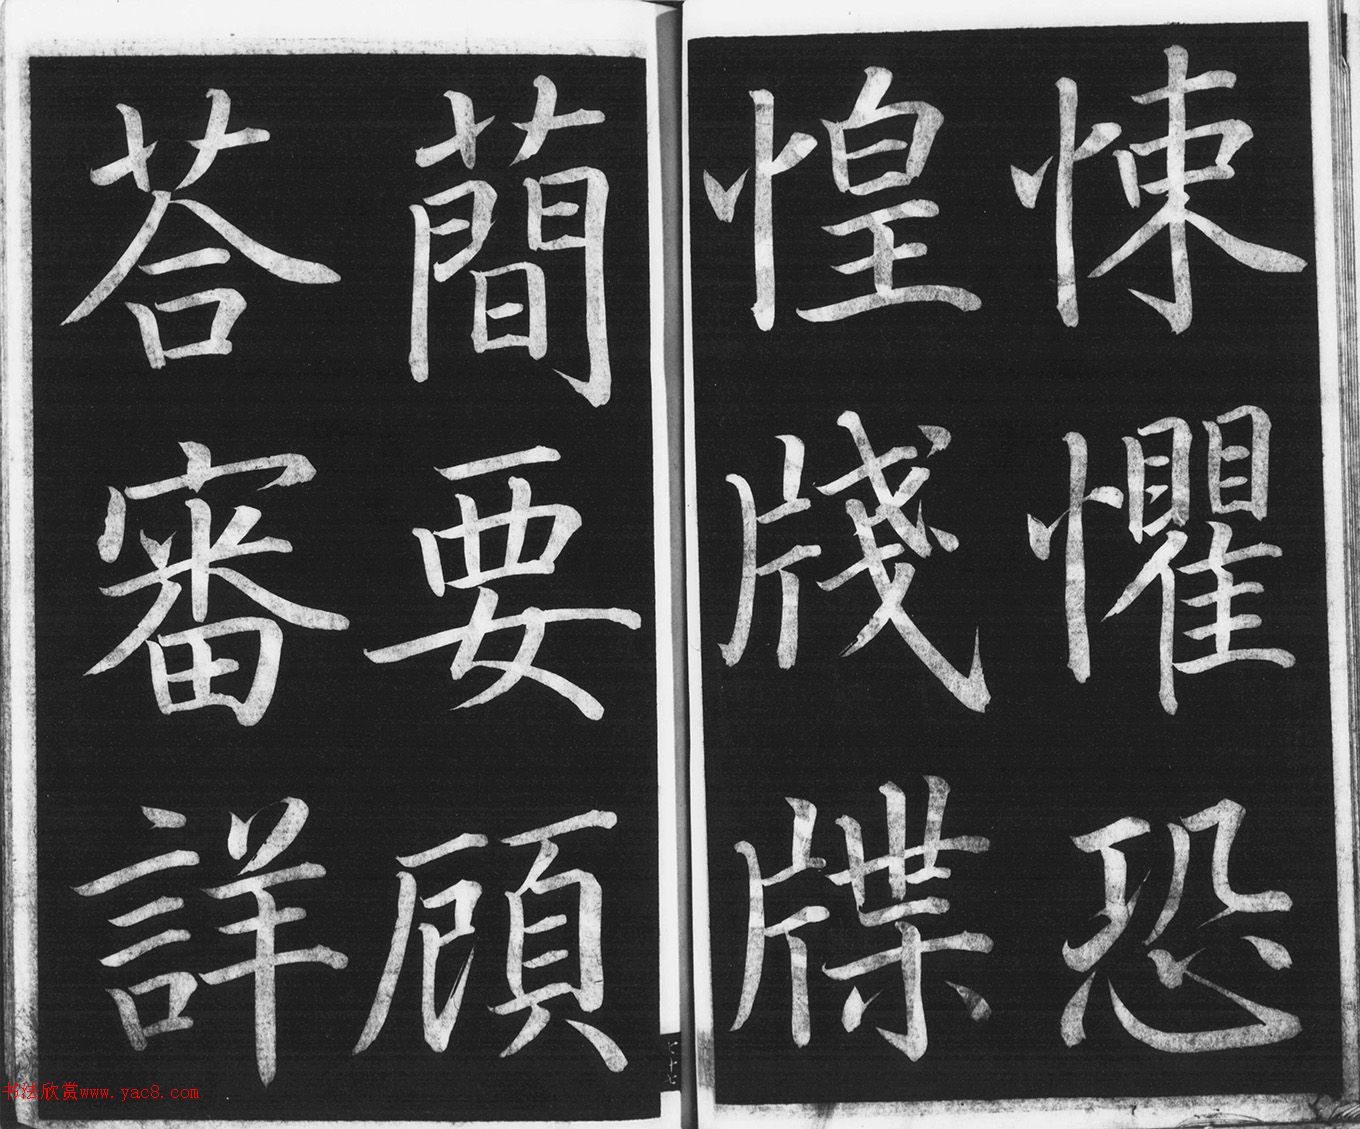 悚懼恐
惶牋牒
蕳要顧
荅審詳
书法欣赏www.yac8.com